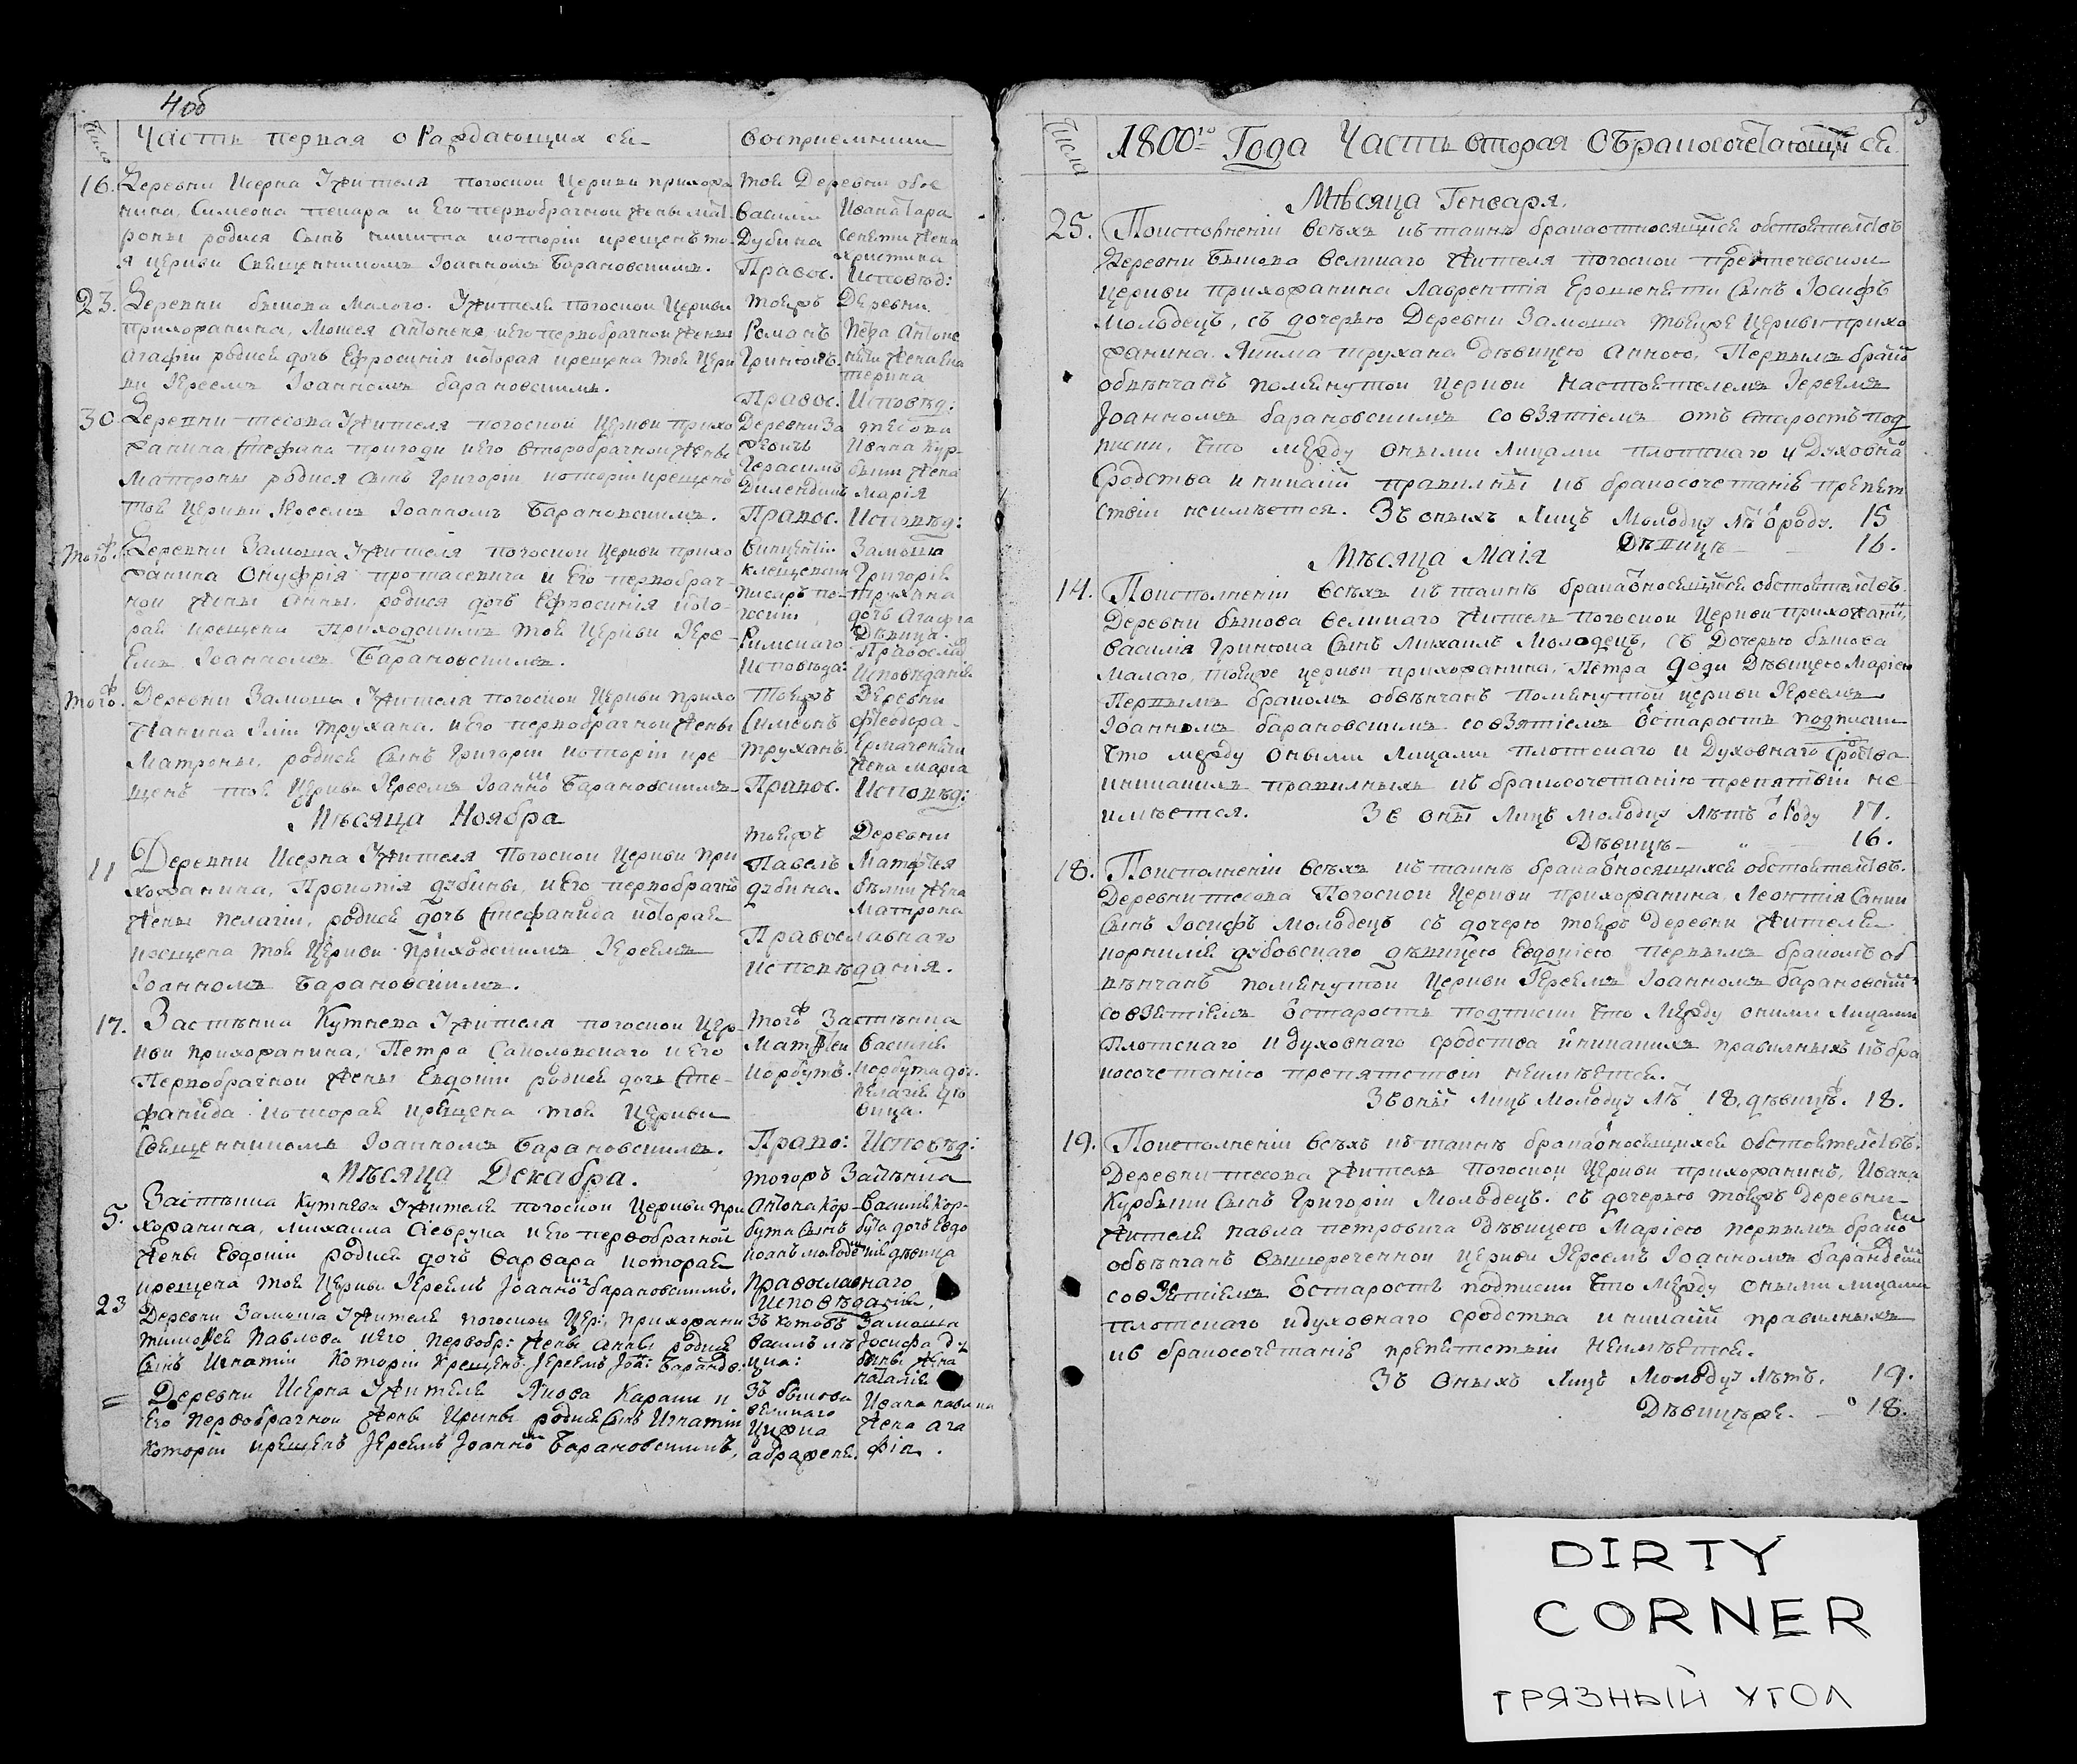 4об
Число
Часть первая о Раждающих ся
восприемники
16. Деревни Исерна Жителя погоской Церкви прихожа
нина, Симеона пекара и Его первобрачной жены мат
роны родися Сынъ никита которiй крещенъ то-
я церкви Священникомъ Iоанномъ Барановскимъ.
той Деревни обое
Василiй Ивана Тара
Дубина севети жена
христина
Правос. Исповѣд:
23. Деревни бытова Малого Жителя погоской Церкви
прихожанина, Мойсея Антоненя, и его первобрачной жены
Агафiи родися дочъ Ефросинiя которая крещена той Церк
ви Iереемъ Iоанномъ барановскимъ.
тойжъ Деревни
Романъ Пера Антоне
Гринюкъ жена Ека
терина
Правос. Исповѣд:
30. Деревни тесова Жителя погоской Церкви прихо
жанина Стефана пригоди и его второбрачной жены
Матроны родися Сынъ Григорiй которiй крещенъ
той Церкви Iереемъ Iоанномъ Барановскимъ.
Деревни За тесова
Ивана Кур-
Герасимъ быки жена
марiя
Правос. Исповѣд:
тогож. Деревни Замоша Жителя погоской Церкви прихо
жанина Онуфрiя протасевича и Его первобрач-
ной жены Анны, родися дочъ Ефросинiя кото-
рая крещена приходскимъ той Церкви Iере-
Емъ Iоанномъ Барановскимъ.
Викентiй Замоша
клещевски Григорiя
писаръ по- трухана
госкiй дочъ Агафiа
дѣвица.
Римскаго Православ
Исповѣда: Исповѣданiя
тогож. Деревни Замоша Жителя погоской Церкви прихо
жанина Iлiи трухана, и его первобрачной жены
Матроны, родися Сынъ Григорiй которiй кре
щенъ той Церкви Iереемъ Iоанно Барановскимъ
тойжъ Деревни
Симеонъ Феодора
труханъ Ермаченки
жена Марiа
Правос. Исповѣд:
Мѣсяца Ноября
11 Деревни Исерна Жителя Погоской Церкви при
хожанина, Прокопiя дубины, и Его первобрачно
жены пелагiи, родися дочъ Стефанида которая
крещена той Церкви приходскимъ Iереемъ
Iоанномъ Барановскимъ.
тойжъ Деревни
Павелъ Матфѣя
дубина. жена
Матрона
Православнаго
исповѣданiя.
17. Застѣнка Кутнева Жителя погоской Цер-
кви прихожанина, Петра Саколовскаго и Его
Первобрачной жены Евдокiи родися дочъ Сте-
фанида которая крещена той Церкви
Священникомъ Iоанномъ Барановскимъ.
тогож Застѣнка
Матфей Василiя
корбутъ. корбута доч.
пелагiя дѣ
вица.
Право: Исповѣд:
Мѣсяца Декабра.
5. Застѣнка Кутнева Жителя погоской Церкви при
хожанина, михаила Севрука и его первобрачной
жены Евдокiи родися дочъ варвара которая
крещена той Церкви Iереемъ Iоанно барановскимъ.
тогожъ Застѣнка
Антона Кор- Василiя Кор-
бута Сынъ бута дочъ Евдо
молоде кiя дѣвица
Православнаго
Исповѣданiя.
23 Деревни Замоша Жителя погоской Цер: прихожани
тимофея Павлова и его первобр: жены анны родися
Сынъ Игнатiй Которiй крещенъ Iереемъ Iоа: Барано:
Зъ Замоша
Iосифа ду
бины жена
наталiя
= Деревни Исерна Жителя Якова Караки и
Его первобрачной жены Ирины родися Сынъ Игнатiй
Которiй крещенъ Iереемъ Iоанно Барановскимъ,
Зъ бытова
великаго Ивана
жена ага
фiя.
5
Числа
1800го Года Часть вторая О Бракосочетающихся
Мѣсяца Генваря.
25. По исполненiи всѣхъ къ таинъ брака относящихся обстоятелствъ
Деревни Бытова великаго Жителя погоской предтечевской
церкви прихожанина Лаврентiя Ерошенети Сынъ Iосифъ
молодецъ, съ дочерью Деревни Замоша тойжре Церкви прихо
жанина Якима трухана дѣвицею анною, Первымъ брако
обвѣнчанъ помянутой церкви настоятелемъ Iереемъ
Iоанномъ барановскимъ со взятiемъ отъ старостъ под
писки, что между оными лицами плотскаго и Духовна
сродства и никакi правилны къ бракосочетанiю препят
ствiй неимѣется. Зъ оныхъ Лицъ Молодцу лѣ ѿроду. 15
Дѣвицѣ — 16.
Мѣсяца Маiя
14. По исполненiи всѣхъ къ таинъ брака ѿносящихся обстоятелствъ
Деревни бытова великаго Жителя погоской Церкви прихожани,
василiя Гринюка Сынъ Михаилъ Молодецъ, съ Дочерью бытова
малаго, тойжре церкви прихожанина, Петра Деди Дѣвицею Марiею
Первымъ бракомъ обвѣнчанъ помянутой церкви Iереемъ
Iоанномъ барановскимъ со взятiемъ ѿ старостъ подписки
что между оными Лицами плотскаго и Духовнаго сродства
и никакихъ правилныхъ къ бракосочетанiю препятствiй не-
имѣется. Зъ оны Лицъ молодцу лѣтъ ѿроду 17.
Дѣвицѣ — „ — 16.
18. По исполненiи всѣхъ къ таинъ брака ѿносящихся обстоятелствъ.
Деревни тесова Погоской Церкви прихожанина, Леонтiя Санки
Сынъ Iосифъ молодецъ съ дочерю тойжъ деревни жителя
корнилiя дубовскаго дѣвицею Евдокiею первымъ бракомъ об
вѣнчанъ помянутой Церкви Iереемъ Iоанномъ барановски
со взятiемъ ѿ старостъ подписки что Между оними Лицами
плотскаго и духовнаго сродства и никакихъ правилныхъ къ бра
косочетанiю препятствiй неимѣется.
Зъ оны Лицъ Молодцу Лѣ 18, дѣвицѣж. 18.
19. По исполненiи всѣхъ къ таинъ брака ѿносящихся обстоятелствъ.
Деревни тесова жителя погоской Церкви прихожанинъ, Ивана
Курбыки Сынъ Григорiй Молодецъ. съ дочерью тойжъ деревни
жителя павла петровича дѣвицею Марiею первымъ брако
обвѣнчанъ вышереченной церкви Iереемъ Iоанномъ барановски
со взятiемъ ѿ старостъ подписки что Между оными лицами
плотскаго и духовнаго сродства и никакi правилныхъ
къ бракосочетанiе препятствiй Неимѣется.
Зъ Оныхъ Лицъ Молодцу лѣтъ. 19.
Дѣвицѣже. — 18.
DIRTY
CORNER
ГРЯЗНЫЙ УГОЛ